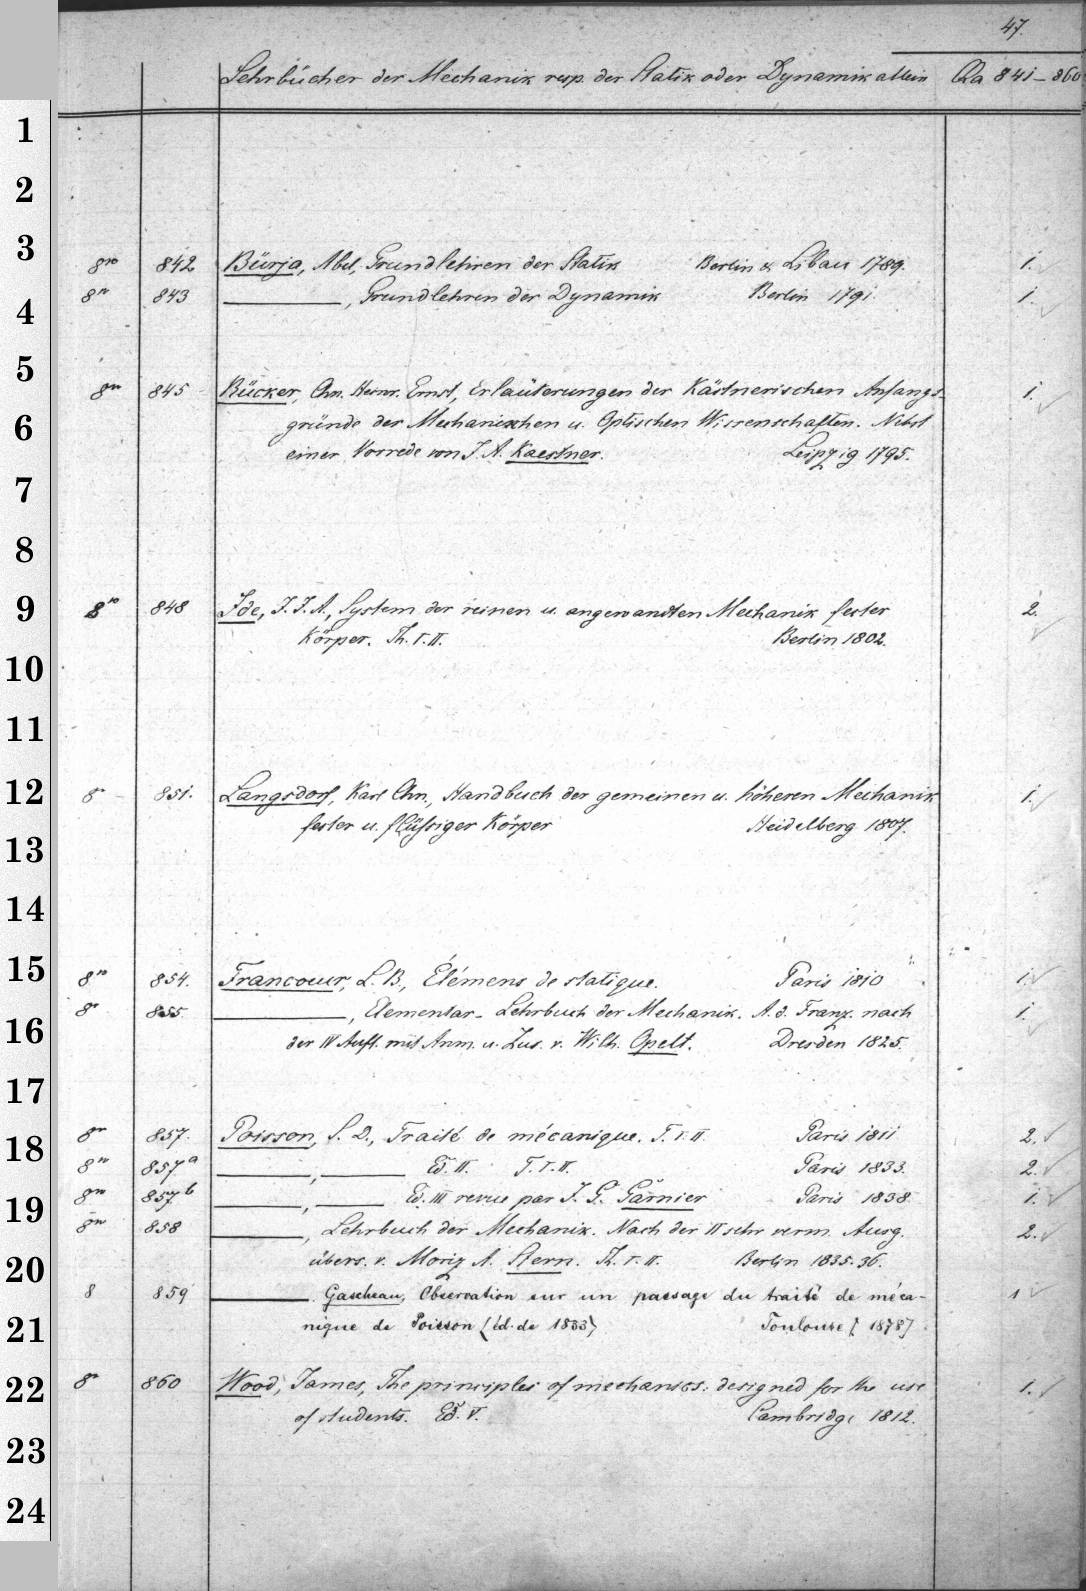 47.
Lehrbücher der Mechanik resp. der Statik oder Dynamik allein Qa 841–860
1
2
3
8vo 842 Bürja, Abel, Grundlehren der Statik Berlin & Libau 1789. 1.
8vo 843 ———, Grundlehren der Dynamik Berlin 1791. 1.
4
5
8vo 845 Bücker, Chn. Heinr. Ernst, Erläuterungen der Kästnerischen Anfangs- 1.
6 gründe der Mechanischen u. Optischen Wissenschaften. Nebst
einer Vorrede von J. A. Kaestner. Leipzig 1795.
7
8
9 8vo 848 Ide, J. J. A., System der reinen u. angewandten Mechanik fester 2.
Körper. Th. I. II. Berlin 1802.
10
11
12 8vo 851. Langsdorf, Karl Chn., Handbuch der gemeinen u. höheren Mechanik 1.
fester u. flüssiger Körper Heidelberg 1807.
13
14
15 8vo 854. Francoeur, L. B., Élémens de statique. Paris 1810 1.
8vo 855. ———, Elementar-Lehrbuch der Mechanik. A. d. Franz. nach 1.
16 der IV Aufl. mit Anm. u. Zus. v. Wilh. Opelt. Dresden 1825.
17
18 8vo 857. Poisson, S. D., Traité de mécanique. T. I. II. Paris 1811 2.
8vo 857a ———, ——— Ed. II. T. I. II. Paris 1833. 2.
19 8vo 857b ———, ——— Ed. III revue par J. G. Garnier Paris 1838 1.
8vo 858 ———, Lehrbuch der Mechanik. Nach der II sehr verm. Ausg. 2.
20 übers. v. Moriz A. Stern. Th. I. II. Berlin 1835. 36.
8 859 ———. Gascheau, Observation sur un passage du traité de méca- 1
21 nique de Poisson (éd. de 1833) Toulouse [1878]
22 8vo 860 Wood, James, The principles of mechanics: designed for the use 1.
of students. Ed. V. Cambridge 1812.
23
24